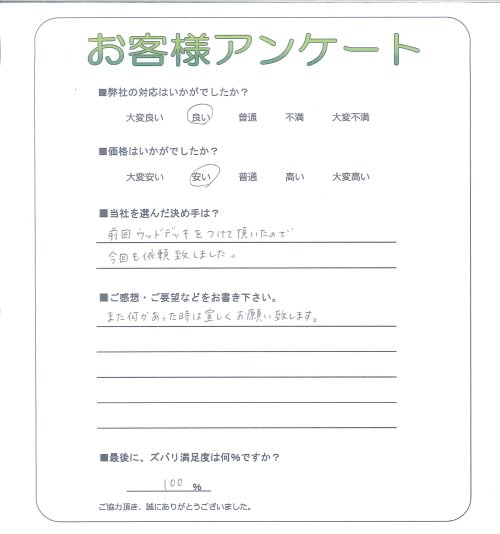 お客様アンケート
■弊社の対応はいかがでしたか？
大変良い 良い 普通 不満 大変不満
■価格はいかがでしたか？
大変安い 安い 普通 高い 大変高い
■当社を選んだ決め手は？
前回ウッドデッキをつけて頂いたので
今回も依頼致しました。
■ご感想・ご要望などをお書き下さい。
また何かあった時は宜しくお願い致します。
■最後に、ズバリ満足度は何％ですか？
100 ％
ご協力頂き、誠にありがとうございました。